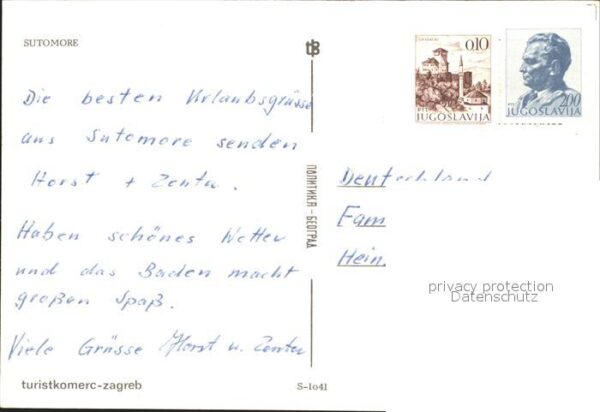 SUTOMORE
Die besten Urlaubsgrüsse
aus Sutomore senden
Horst + Zenta.
Haben schönes Wetter
und das Baden macht
großen Spaß.
Viele Grüsse Horst u. Zenta
turistkomerc-zagreb
S-1041
ПОЛИТИКА - БЕОГРАД
0,10
JUGOSLAVIJA
2,00
JUGOSLAVIJA
Deutschland
Fam
Hein
privacy protection
Datenschutz